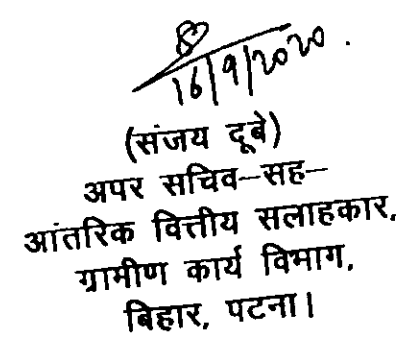 16/9/2020.
(संजय दूबे)
अपर सचिव–सह–
आंतरिक वित्तीय सलाहकार,
ग्रामीण कार्य विभाग,
बिहार, पटना।